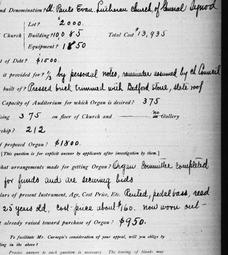 nd Denomination? St. Pauls Evan. Lutheran Church of General Synod
Lot? $2000.
Church Building? 10,085 Total Cost $13,935
Equipment? 1850
t of Debt? $1500.
it provided for? 1/3 by personal notes, remainder assumed by ch Council
built of? Pressed brick trimmed with Bedford stone, slate roof
Capacity of Auditorium for which Organ is desired? 375
ting 375 on floor of Church and — Gallery
ship? 212
f proposed Organ? $1800.
[This question is for explicit answer by applicants after investigation by them.]
hat arrangements made for getting Organ? Organ Committee completed
for funds and are securing bids
lars of present Instrument, Age, Cost Price, Etc. Rented, pedal bass, reed
25 years old, cost price about $160. now worn out
t already raised toward purchase of Organ? $950.
To facilitate Mr. Carnegie's consideration of your appeal, will you oblige by
ling in the above?
Precise answer to each question is necessary. The leaving of blanks may